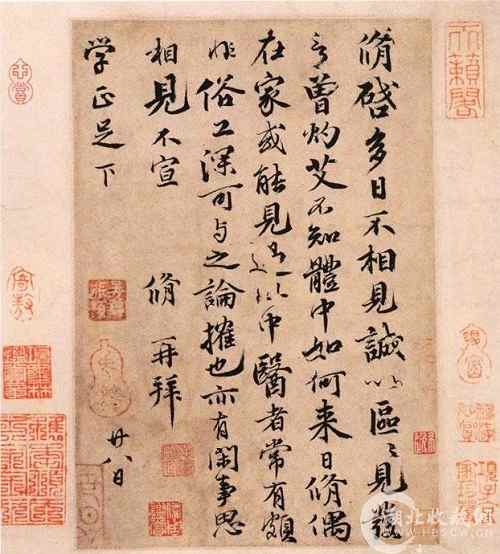 脩啓多日不相見誠以區〻見發
言曾灼艾不知體中如何来日脩偶
在家或能見過此中醫者常有頗
非俗工深可与之論搉也亦有閑事思
相見不宣 脩再拜
学正足下 廿八日
天籟閣
湖北收藏网